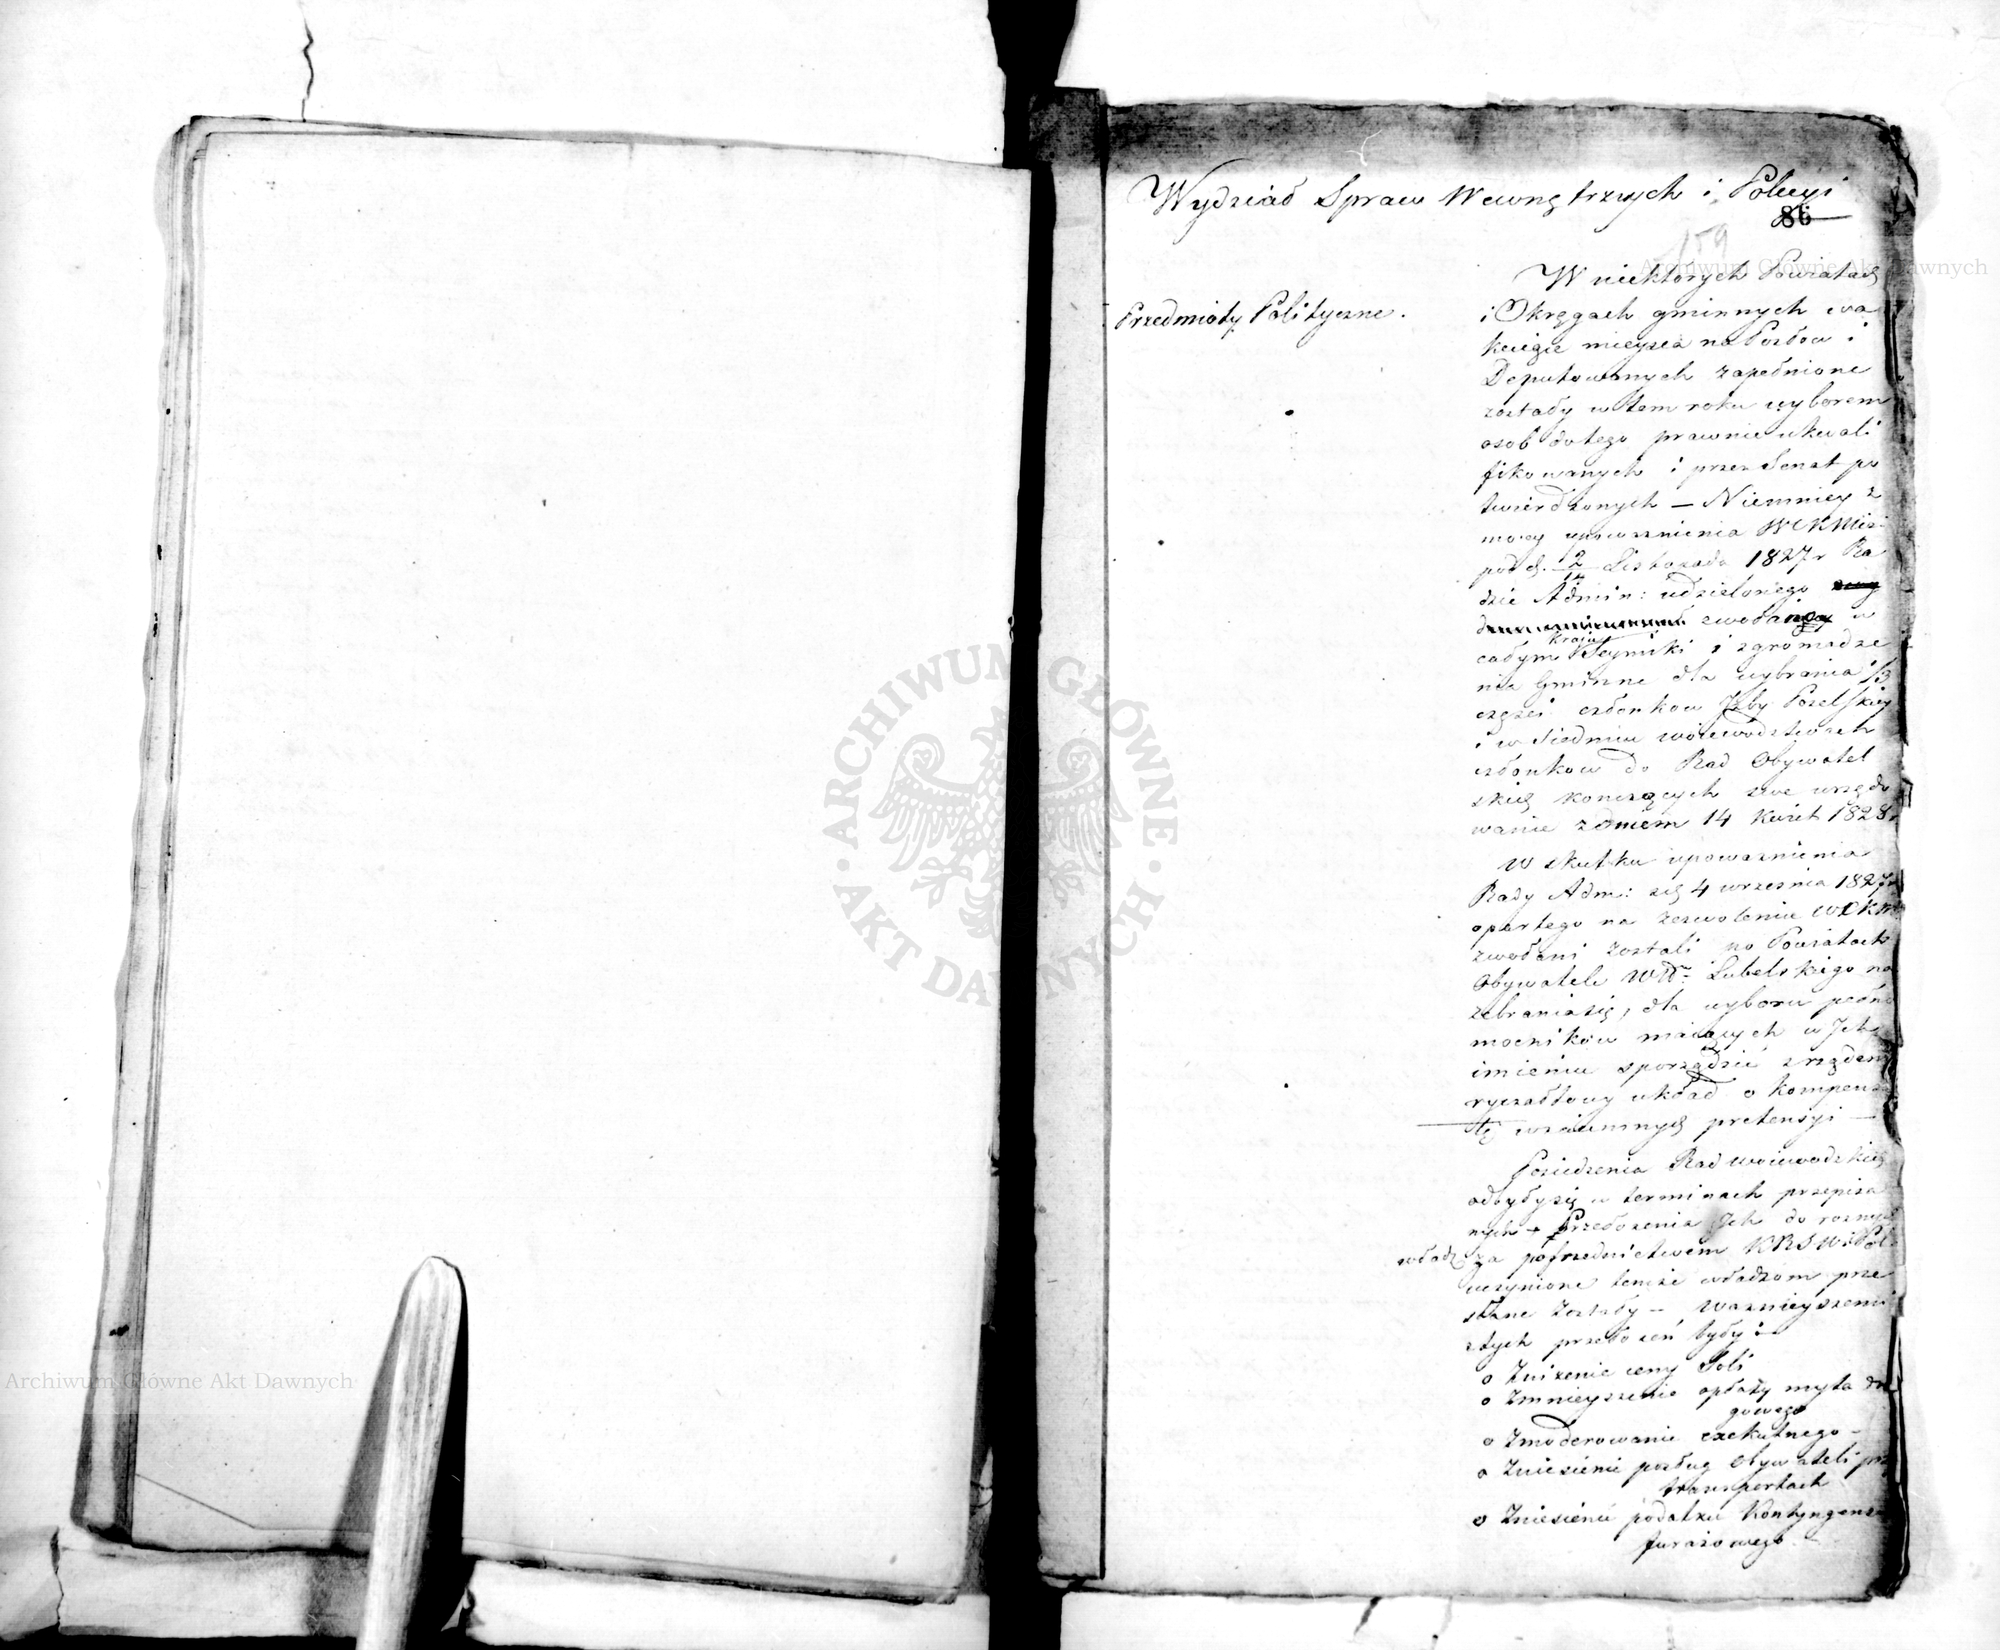 Wydział Spraw Wewnętrznych i Policyi
86
159
Przedmioty Polityczne.
W niektorych Powiatach
i Okręgach gminnych wa
kuiące mieysca na Posłow i
Deputowanych zapełnione
zostały w tem roku wyborem
osob do tego prawnie ukwali
fikowanych i przez Senat po
twierdzonych — Niemniey z
mocy upoważnienia WCKMsci
pod d. 2/14 Listopada 1827 r Ra
dzie Admin: udzielonego
zwołano w
Kraju
całym Seymiki i zgromadze
nia Gminne dla wybrania 1/3
częsci członkow Jzby Poselskiey
i w siedmiu woiewodztwach
członkow do Rad Obywatel
skich konczących swe urzędo
wanie z dniem 14 Kwiet 1828 r
W skutku upoważnienia
Rady Adm: z d. 4 września 1827 r
opartego na zezwoleniu WCKM
zwołani zostali po Powiatach
Obywatele Wdz. Lubelskiego na
zebrania się, dla wyboru pełno
mocników maiących w Jch
imieniu sporządzić z rządem
ryczałtowy układ o kompensa
tę wzaiemnych pretensyi —
Posiedzenia Rad Woiewodzkich
odbyły się w terminach przepisa
nych — Przełożenia Jch do roznych
władz za pośrednictwem KRSWiPol
uczynione tymże władzom prze
słane zostały — Ważnieyszemi
z tych przełożeń były:
o Zniżenie ceny Soli
o Zmnieyszenie opłaty myta dro
gowego
o Zmoderowanie exekutnego —
o Zniesienie posług Obywateli przy
transportach
o Zniesienie podatku Kontyngensu
furażowego
Archiwum Główne Akt Dawnych
Archiwum Główne Akt Dawnych
ARCHIWUM GŁÓWNE · AKT DAWNYCH ·